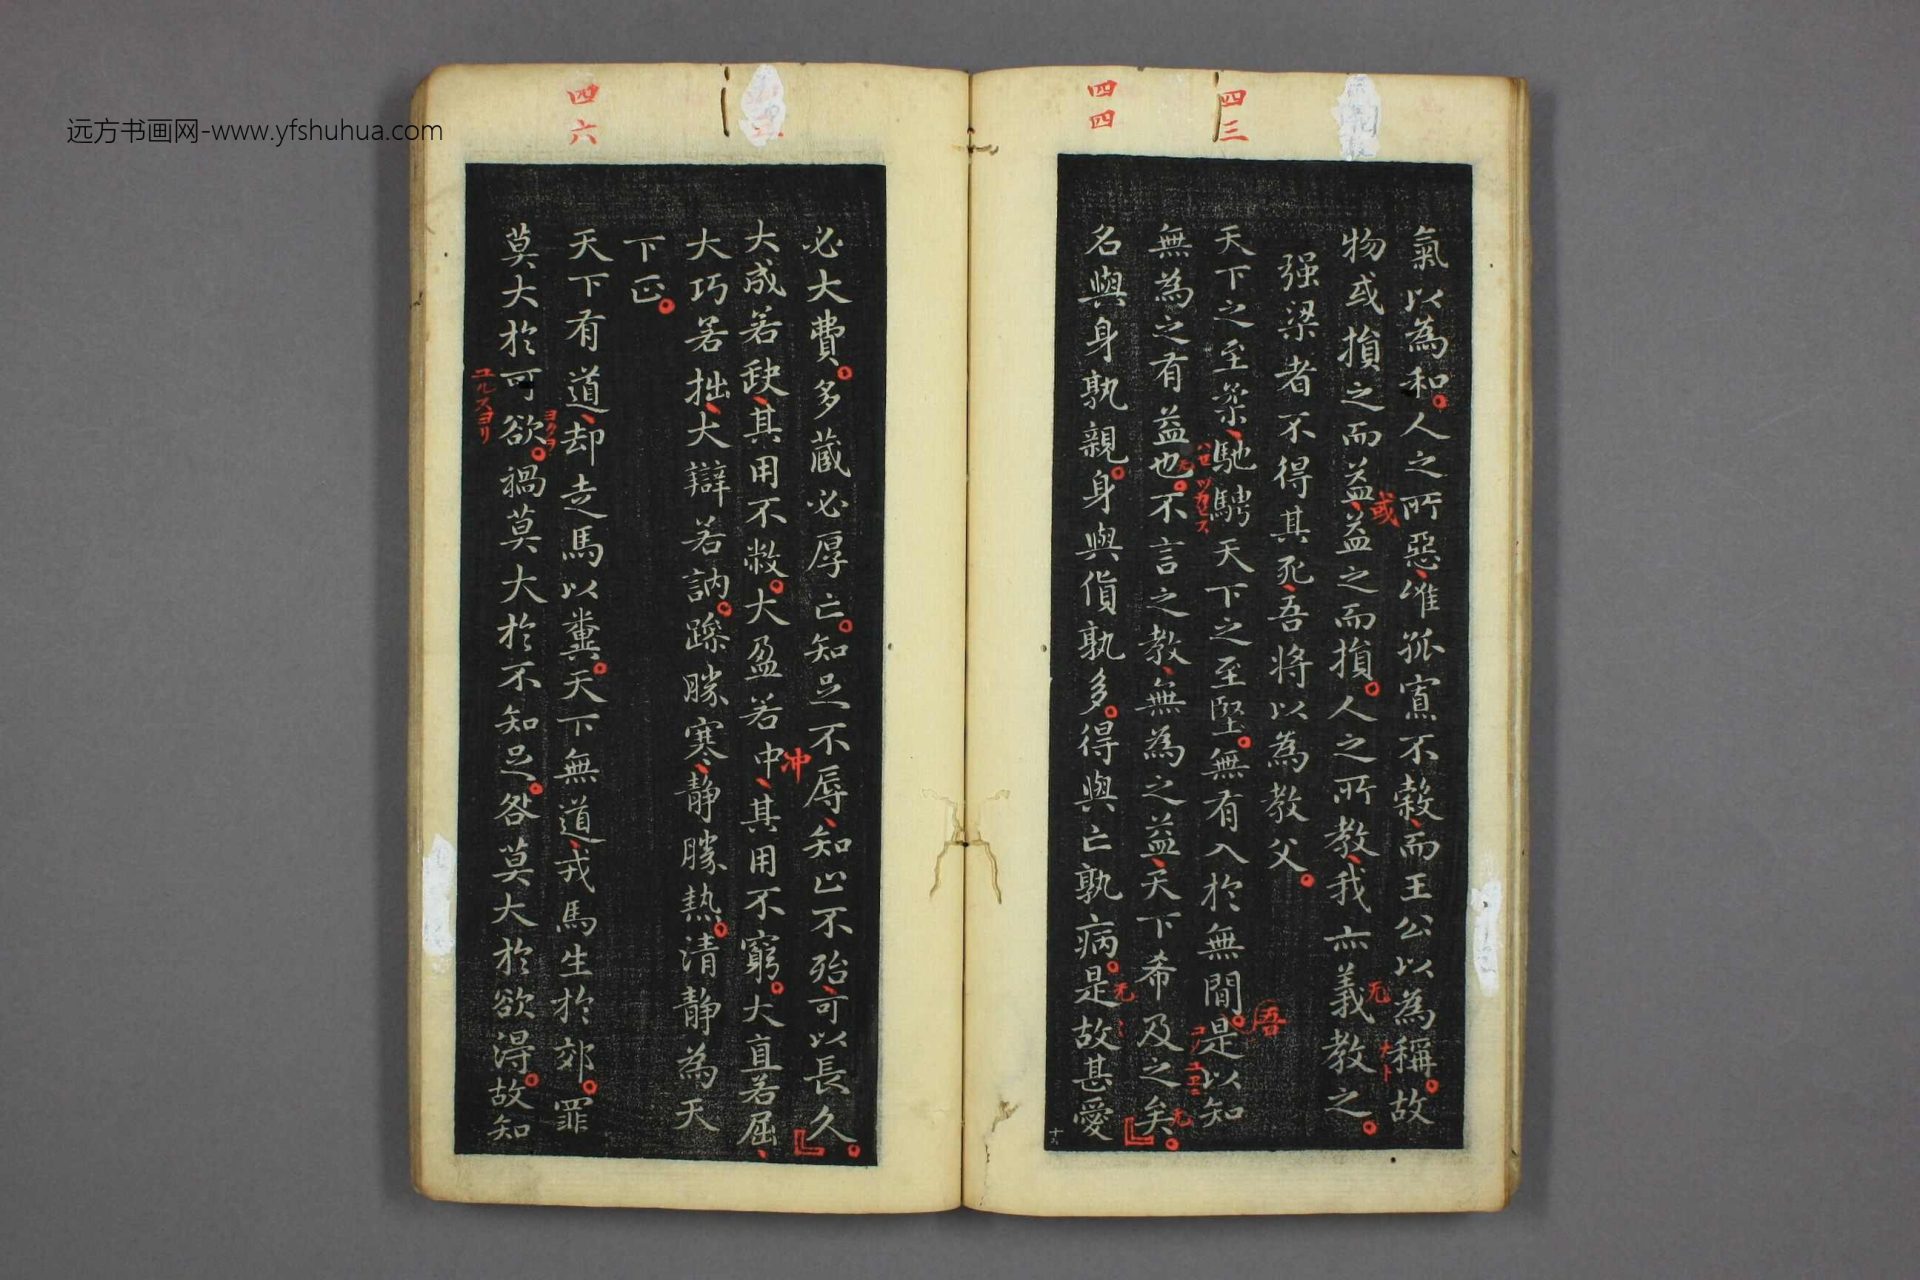 远方书画网-www.yfshuhua.com
四三
四四
氣以為和人之所惡唯孤寡不穀而王公以為稱故
物或損之而益益之而損人之所教我亦義教之
强梁者不得其死吾將以為教父
天下之至柔馳騁天下之至堅無有入於無間是以知
無為之有益也不言之教無為之益天下希及之矣
名與身孰親身與貨孰多得與亡孰病是故甚愛
或
无
ナト
吾
ハセツカセス
无
无
无
十六
四六
必大費多藏必厚亡知足不辱知止不殆可以長久
大成若缺其用不敝大盈若中其用不窮大直若屈
大巧若拙大辯若訥躁勝寒靜勝熱清靜為天
下正
天下有道却走馬以糞天下無道戎馬生於郊罪
莫大於可欲禍莫大於不知足咎莫大於欲得故知
冲
ヨクヲ
ユルスヨリ